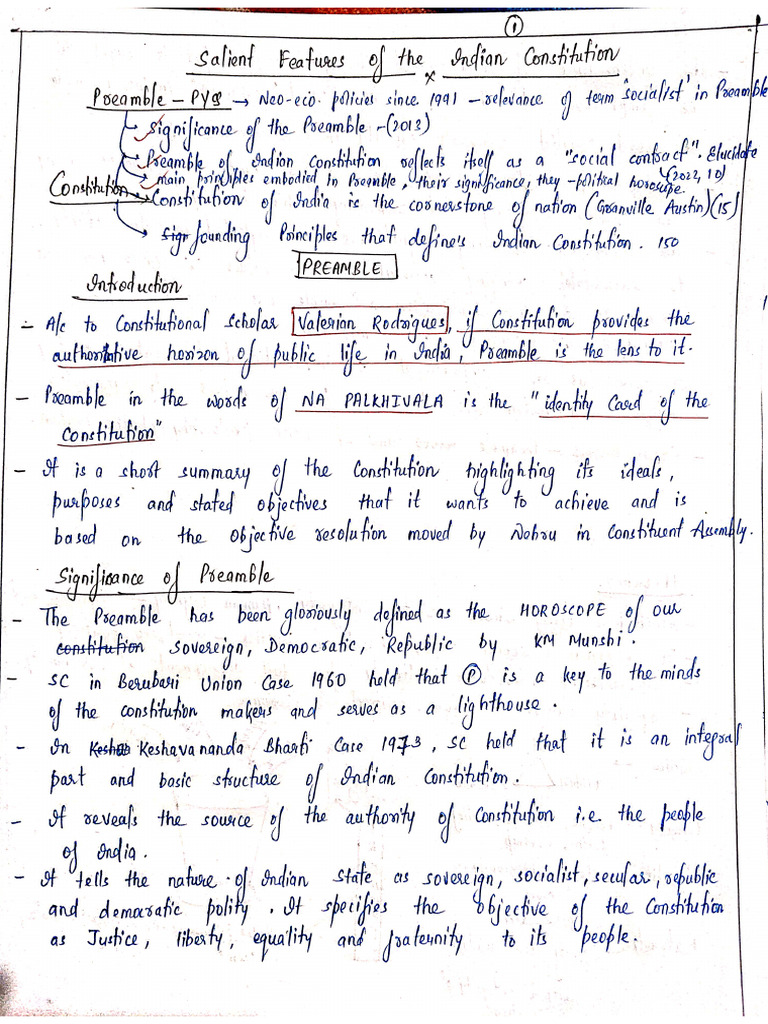 ①
Salient Features of the Indian Constitution
Preamble – PYQ → Neo-eco. policies since 1991 – relevance of term 'socialist' in Preamble
Significance of the Preamble – (2013)
Preamble of Indian Constitution reflects itself as a "social contract". Elucidate
(2022, 10)
main principles embodied in Preamble, their significance, they – political horoscope.
Constitution → Constitution of India is the cornerstone of nation (Granville Austin) (15)
founding Principles that define's Indian Constitution. 150
PREAMBLE
Introduction
– A/c to Constitutional Scholar Valerian Rodrigues, if Constitution provides the
authoritative horizon of public life in India, Preamble is the lens to it.
– Preamble in the words of NA PALKHIVALA is the "identity Card of the
Constitution"
– It is a short summary of the Constitution highlighting its ideals,
purposes and stated objectives that it wants to achieve and is
based on the objective resolution moved by Nehru in Constituent Assembly.
Significance of Preamble
– The Preamble has been gloriously defined as the HOROSCOPE of our
constitution sovereign, Democratic, Republic by KM Munshi.
– SC in Berubari Union Case 1960 held that Ⓟ is a key to the minds
of the constitution makers and serves as a lighthouse.
– In Keshavananda Bharti Case 1973, SC held that it is an integral
part and basic structure of Indian Constitution.
– It reveals the source of the authority of Constitution i.e. the people
of India.
– It tells the nature of Indian State as sovereign, socialist, secular, republic
and democratic polity. It specifies the objective of the Constitution
as Justice, liberty, equality and fraternity to its people.